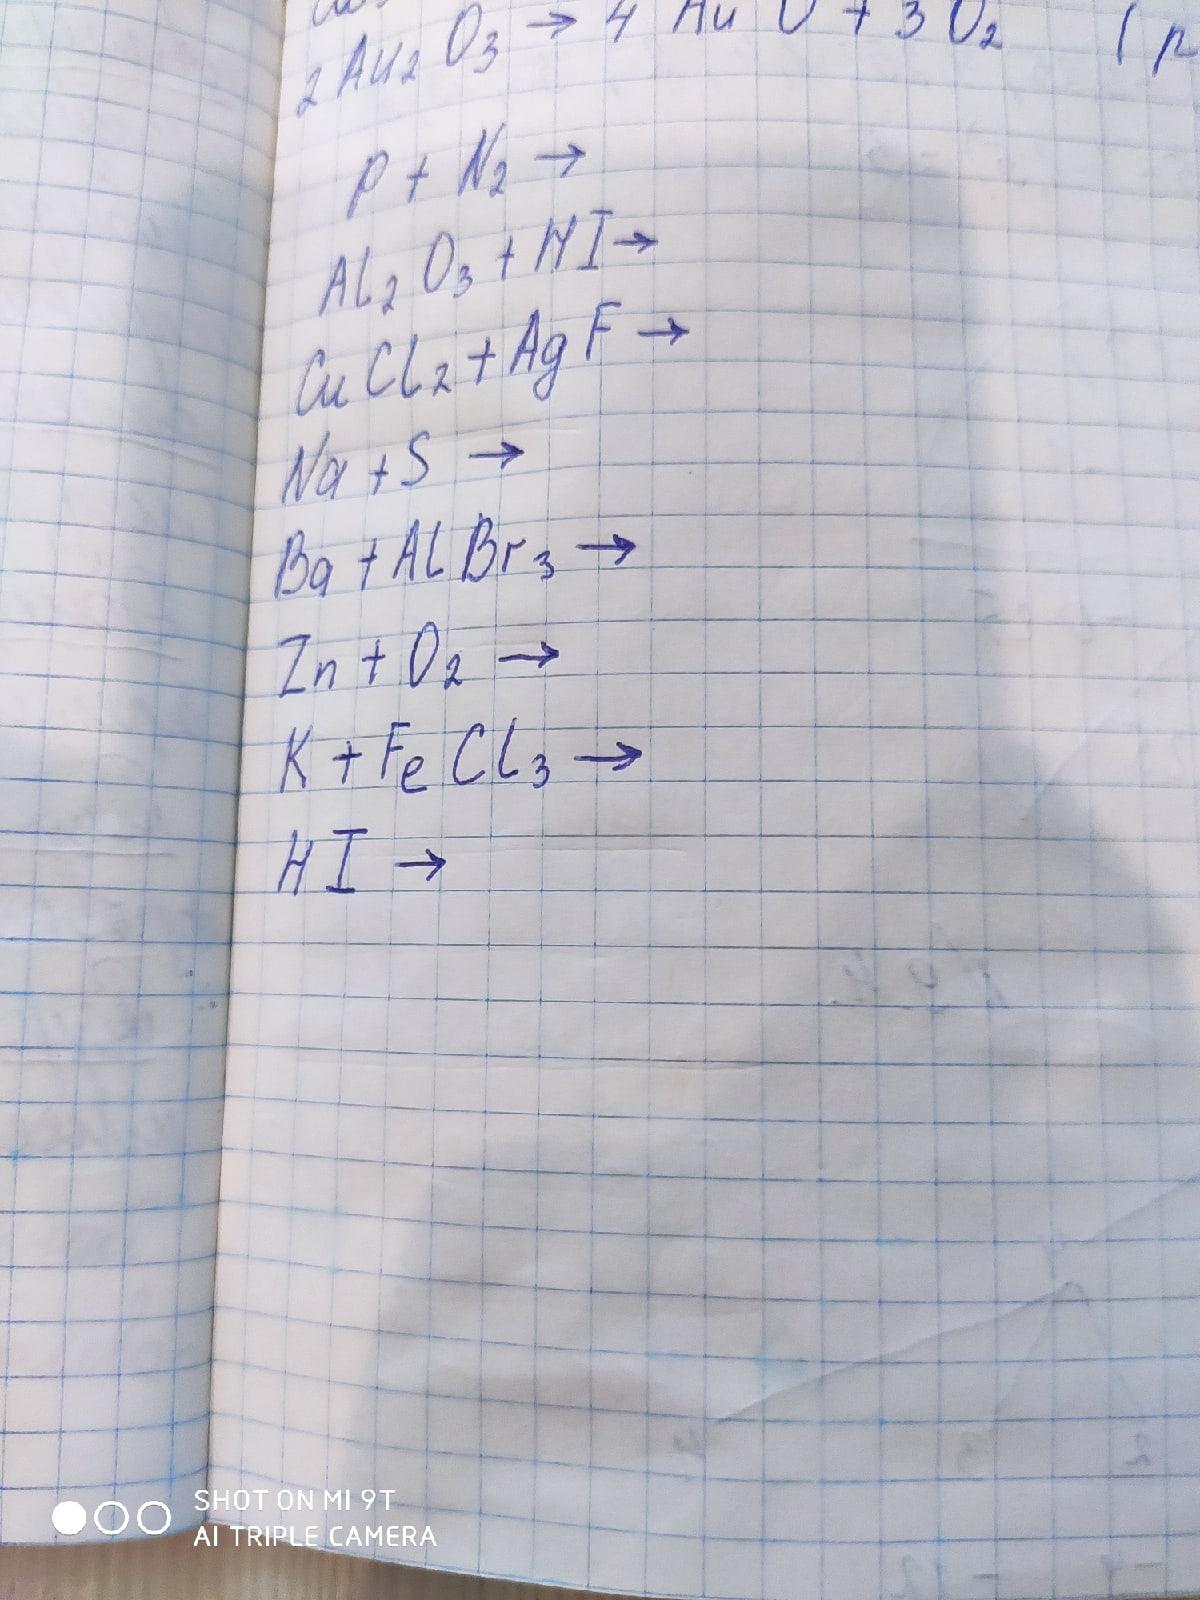 2Au₂O₃ → 4 Au O + 3O₂
P + N₂ →
Al₂O₃ + HI →
CuCl₂ + AgF →
Na + S →
Ba + AlBr₃ →
Zn + O₂ →
K + FeCl₃ →
HI →
SHOT ON MI 9T
AI TRIPLE CAMERA